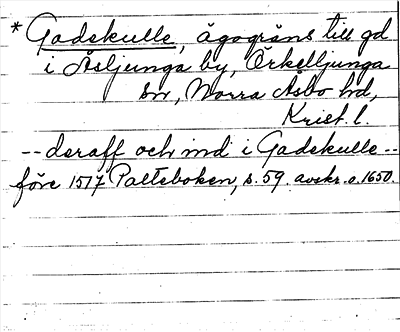 * Gadekulle, ägogräns till gd
i Åsljunga by, Örkelljunga
sn, Norra Åsbo hd,
Krist. l.
-- deraff och ind i Gadekulle --
före 1517 Palteboken, s. 59. avskr. o. 1650.